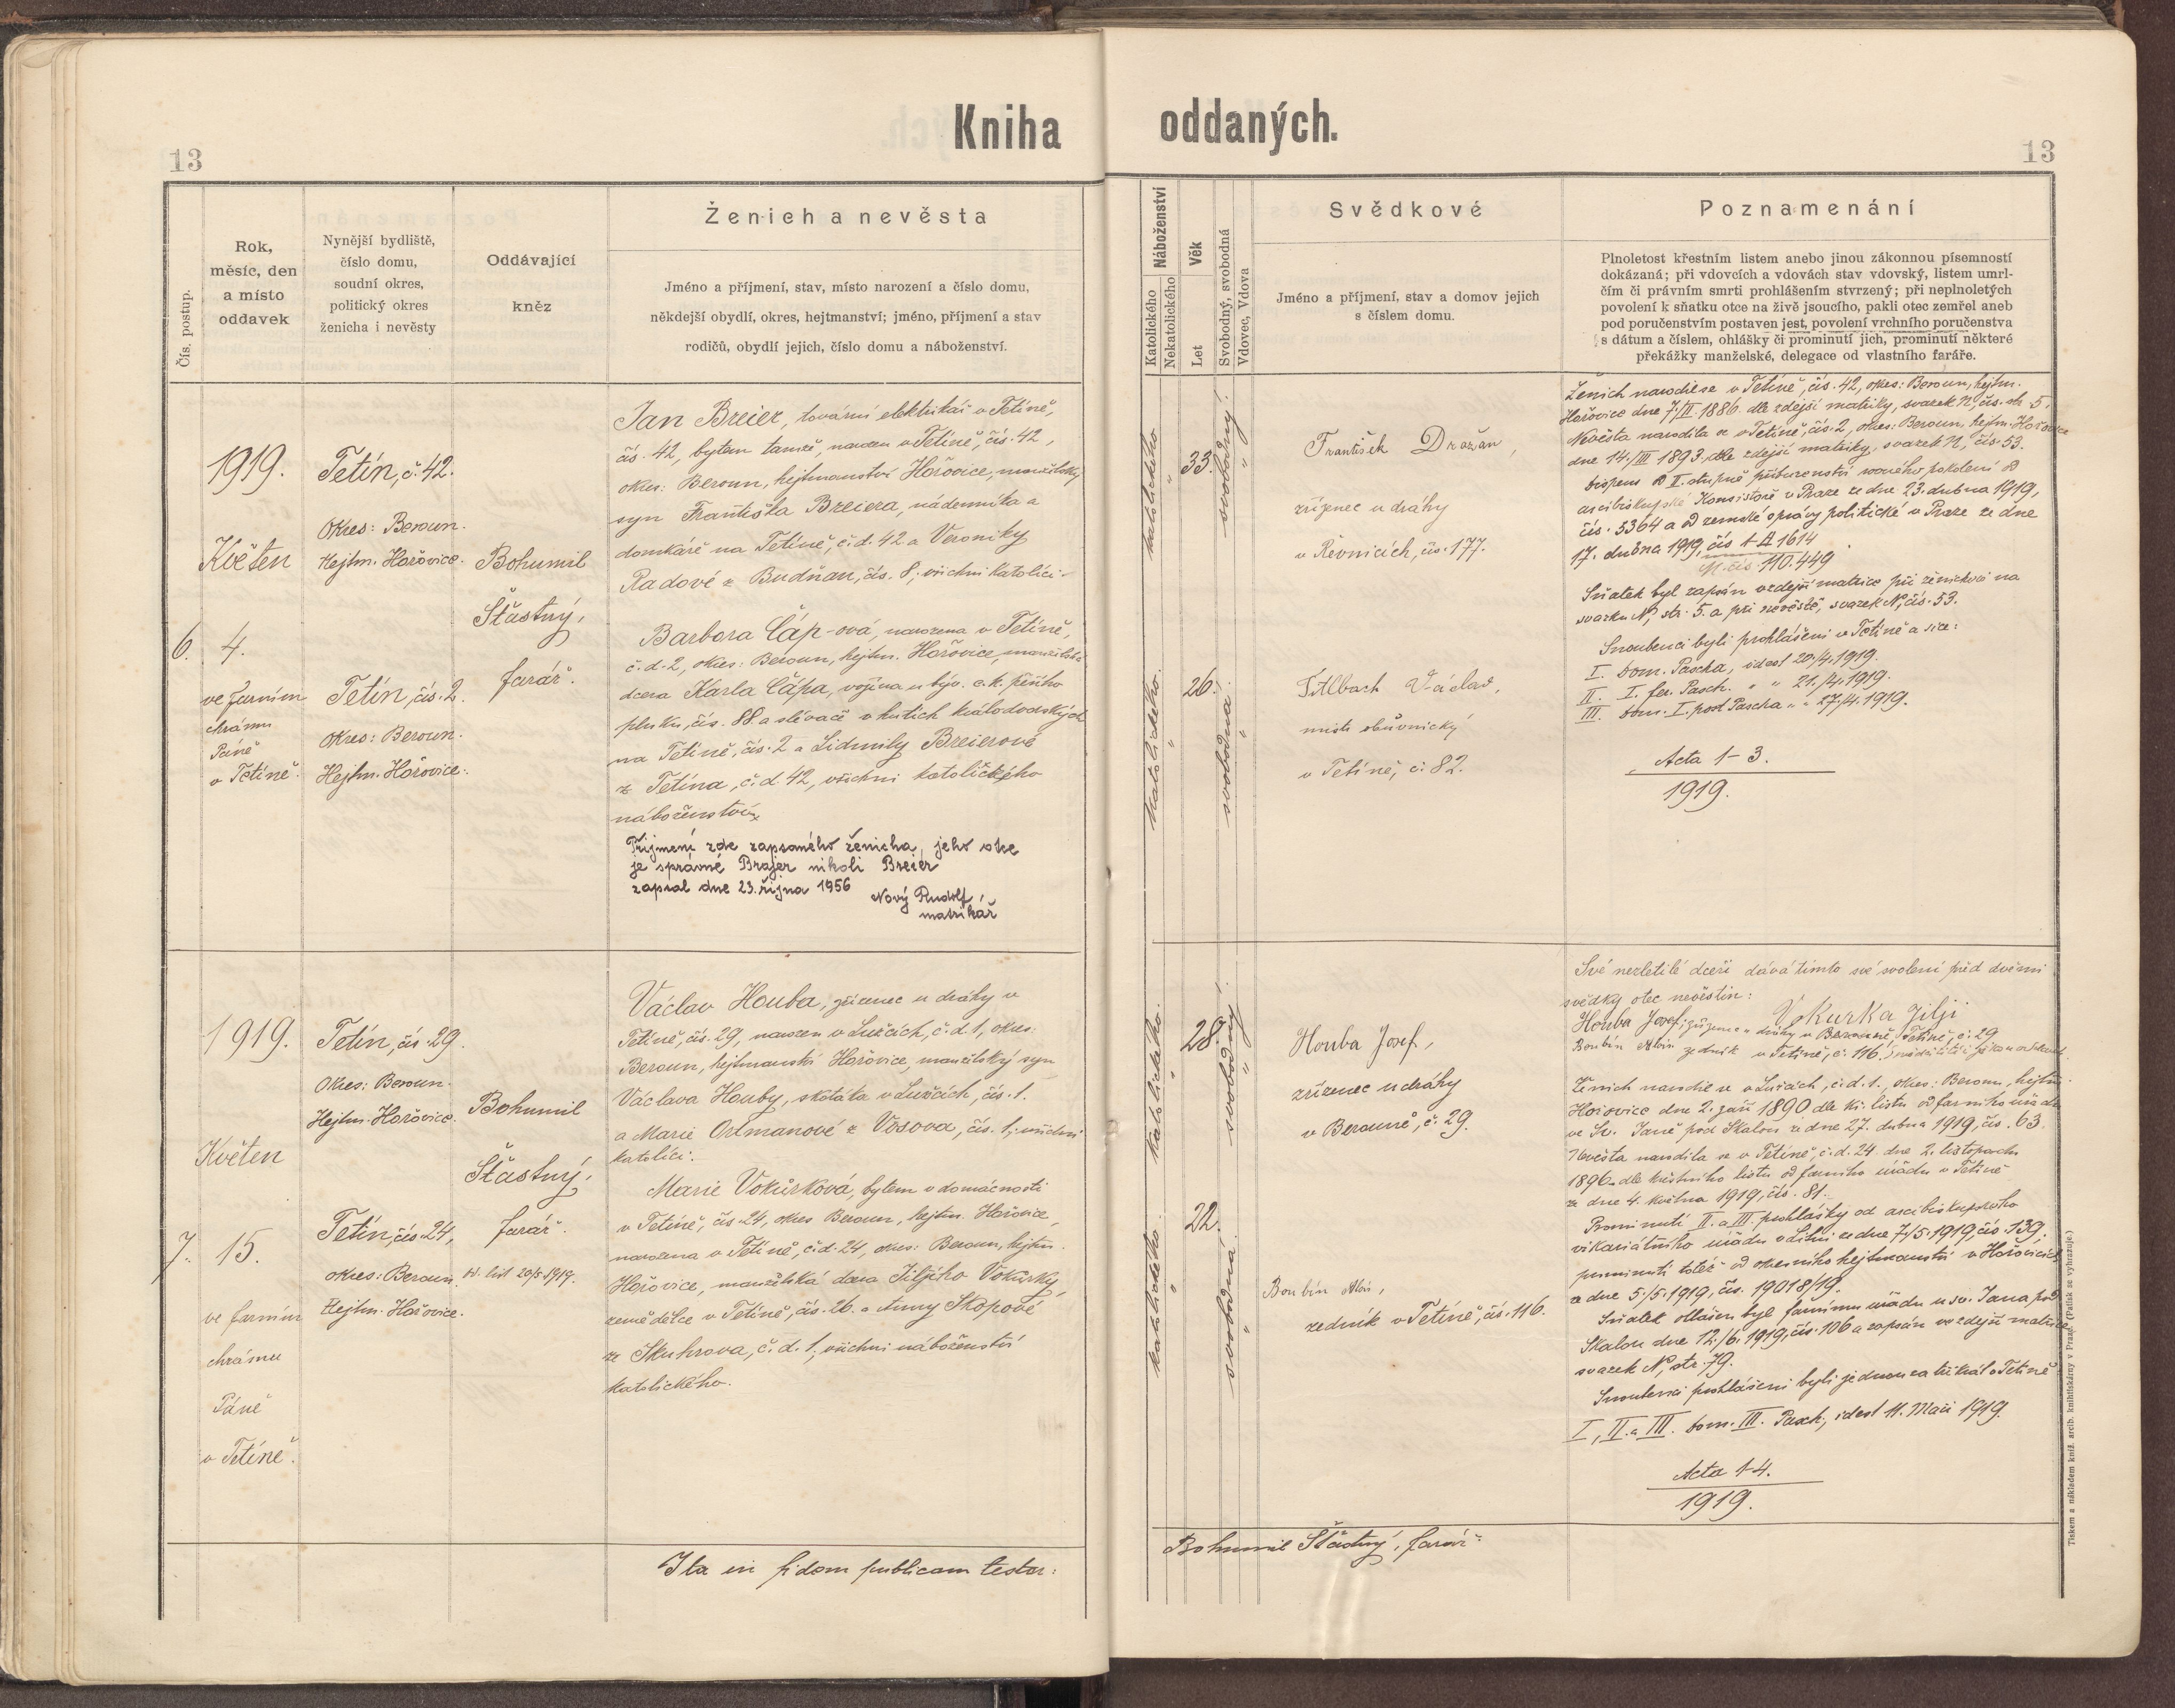 Kniha oddaných.
13
13
Čís. postup.
Rok,
měsíc, den
a místo
oddavek
Nynější bydliště,
číslo domu,
soudní okres,
politický okres
ženicha i nevěsty
Oddávající
kněz
Ženich a nevěsta
Jméno a příjmení, stav, místo narození a číslo domu,
někdejší obydlí, okres, hejtmanství; jméno, příjmení a stav
rodičů, obydlí jejich, číslo domu a náboženství.
Náboženství
Katolického
Nekatolického
Věk
Let
Svobodný, svobodná
Vdovec, Vdova
Svědkové
Jméno a příjmení, stav a domov jejich
s číslem domu.
Poznamenání
Plnoletost křestním listem anebo jinou zákonnou písemností
dokázaná; při vdovcích a vdovách stav vdovský, listem umrl-
čím či právním smrti prohlášením stvrzený; při neplnoletých
povolení k sňatku otce na živě jsoucího, pakli otec zemřel aneb
pod poručenstvím postaven jest, povolení vrchního poručenstva
s dátum a číslem, ohlášky či prominutí jich, prominutí některé
překážky manželské, delegace od vlastního faráře.
6.
1919.
Květen
4.
ve farním
chrámu
Páně
v Tetíně.
Tetín, č. 42.
Okres: Beroun.
Hejtm. Hořovice.
Tetín, čís. 2.
Okres: Beroun.
Hejtm. Hořovice.
Bohumil
Šťastný,
farář.
Jan Breier, tovární elektrikář v Tetíně,
čís. 42, bytem tamže, narozen v Tetíně, čís. 42,
okres: Beroun, hejtmanství Hořovice, manželský
syn Františka Breiera, nádenníka a
domkáře na Tetíně, č. d. 42 a Veroniky
Radové z Budňan, čís. 8; všichni katolíci.
Barbora Čáp-ová, narozena v Tetíně,
č. d. 2, okres: Beroun, hejtm. Hořovice, manželská
dcera Karla Čápa, vojína u býv. c. k. pěšího
pluku, čís. 88 a slévače v hutích králodvorských
na Tetíně, čís. 2 a Lidmily Breierové
z Tetína, č. d. 42, všichni katolického
náboženství.
Příjmení zde zapsaného ženicha, jeho otce
je správně Brajer nikoli Breier
zapsal dne 23. října 1956
Nový Rudolf,
matrikář
katolického
"
33.
svobodný.
"
katolického.
"
26.
svobodná.
"
František Dražan,
zřízenec u dráhy
v Řevnicích, čís. 177.
Václav,
mistr obuvnický
v Tetíně, č. 82.
Ženich narodil se v Tetíně, čís. 42, okres: Beroun, hejtm.
Hořovice dne 7./II. 1886. dle zdejší matriky, svazek N, čís. str. 5.
Nevěsta narodila se v Tetíně, čís. 2, okres: Beroun, hejtm. Hořovice
dne 14./III 1893. dle zdejší matriky, svazek N, čís. 53.
Dispens od II. stupně příbuzenství rovného pokolení od
arcibiskupské Konsistoře v Praze ze dne 23. dubna 1919,
čís. 5364 a od zemské správy politické v Praze ze dne
17. dubna 1919, čís 1-A 1614
N. čís. 110.449
Sňatek byl zapsán v zdejší matrice při ženichovi na
svazku N, str. 5. a při nevěstě, svazek N, čís. 53.
Snoubenci byli prohlášeni v Tetíně a sice:
I. Dom. Pascha, id est 20./4. 1919.
II. I. fer. Pasch. " " 21./4. 1919.
III. Dom. I. post Pascha " " 27./4. 1919.
Acta 1-3.
1919.
7.
1919.
Květen
15.
ve farním
chrámu
Páně
v Tetíně.
Tetín, čís. 29.
Okres: Beroun.
Hejtm. Hořovice.
Tetín, čís. 24,
okres: Beroun.
Hejtm. Hořovice.
Bohumil
Šťastný,
farář.
list 20/5. 1919.
Václav Houba, zřízenec u dráhy v
Tetíně, čís. 29, narozen v Lužcích, č. d. 1, okres:
Beroun, hejtmanství Hořovice, manželský syn
Václava Houby, skotáka v Lužcích, čís. 1.
a Marie Ortmanové z Vosova, čís. 1; všichni
katolíci.
Marie Vokurková, bytem v domácnosti
v Tetíně, čís. 24, okres Beroun, hejtm. Hořovice,
narozena v Tetíně, č. d. 24, okres: Beroun, hejtm.
Hořovice, manželská dcera Jiljího Vokurky,
zemědělce v Tetíně, čís. 26. a Anny Skopové
ze Skuhrova, č. d. 1; všichni náboženství
katolického.
katolického.
"
28.
svobodný.
"
katolického.
"
22.
svobodná.
"
Houba Josef,
zřízenec u dráhy
v Berouně, č. 29.
Boubín Alois,
zedník v Tetíně, čís. 116.
Své nezletilé dceři dává tímto své svolení před dvěma
svědky otec nevěstin:
Vokurka Jilji
Houba Josef, zřízenec u dráhy v Berouně, Tetíně, č. 29
Boubín Alois zedník v Tetíně, č. 116.
Ženich narodil se v Lužcích, č. d. 1., okres: Beroun, hejtm.
Hořovice dne 2. září 1890 dle kř. listu od farního úřadu
ve Sv. Janě pod Skalou ze dne 27. dubna 1919, čís. 63.
Nevěsta narodila se v Tetíně, č. d. 24 dne 2. listopadu
1896. dle křestního listu od farního úřadu v Tetíně
ze dne 4. května 1919, čís. 81.
Prominutí II. a III. prohlášky od arcibiskupského
vikariátního úřadu v Litni ze dne 7./5. 1919, čís. 139;
prominutí totéž od okresního hejtmanství v Hořovicích
ze dne 5./5. 1919, čís. 19018/19.
Sňatek ohlášen byl farnímu úřadu u sv. Jana pod
Skalou dne 12./6. 1919, čís. 106 a zapsán ve zdejší matrice
svazek N, str. 79.
Snoubenci prohlášeni byli jednou za třikrát v Tetíně
I., II. a III. Dom. III. Pasch., id est 11. Maii 1919.
Acta 1-4.
1919.
Ita in fidem publicam testor:
Bohumil Šťastný, farář.
Tiskem a nákladem kníž. arcib. knihtiskárny v Praze. (Patisk se vyhrazuje.)